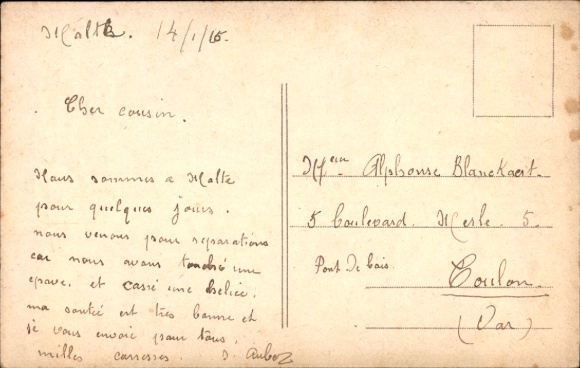 Malte. 14/1/15.
Cher cousin.
Nous sommes a Malte
pour quelques jours.
nous venons pour reparations
car nous avons touché une
epave. et cassé une helice.
ma santé est tres bonne et
je vous envoie pour tous
milles carresses.
Mr Alphonse Blanckaert.
5 boulevard. Merle. 5.
Pont de bois.
Toulon.
(Var)